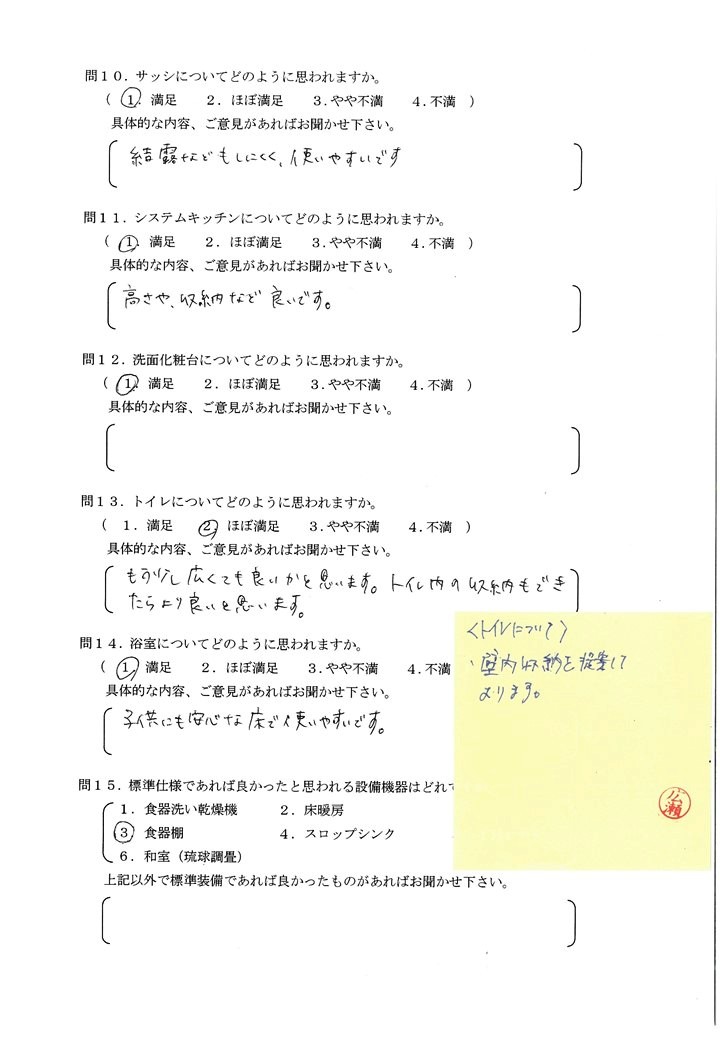 問１０．サッシについてどのように思われますか。
（ １．満足　２．ほぼ満足　３.やや不満　４.不満 ）
具体的な内容、ご意見があればお聞かせ下さい。
結露などもしにくく、使いやすいです
問１１．システムキッチンについてどのように思われますか。
（ １．満足　２．ほぼ満足　３.やや不満　４.不満 ）
具体的な内容、ご意見があればお聞かせ下さい。
高さや、収納など良いです。
問１２．洗面化粧台についてどのように思われますか。
（ １．満足　２．ほぼ満足　３.やや不満　４.不満 ）
具体的な内容、ご意見があればお聞かせ下さい。
問１３．トイレについてどのように思われますか。
（ １．満足　２．ほぼ満足　３.やや不満　４.不満 ）
具体的な内容、ご意見があればお聞かせ下さい。
もう少し広くても良いかと思います。トイレ内の収納もでき
たらより良いと思います。
問１４．浴室についてどのように思われますか。
（ １．満足　２．ほぼ満足　３.やや不満　４.不満
具体的な内容、ご意見があればお聞かせ下さい。
子供にも安心な床で使いやすいです。
〈トイレについて〉
・壁内収納を提案して
おります。
広瀬
問１５．標準仕様であれば良かったと思われる設備機器はどれで
１．食器洗い乾燥機　２．床暖房
３ 食器棚　４．スロップシンク
６．和室（琉球調畳）
上記以外で標準装備であれば良かったものがあればお聞かせ下さい。